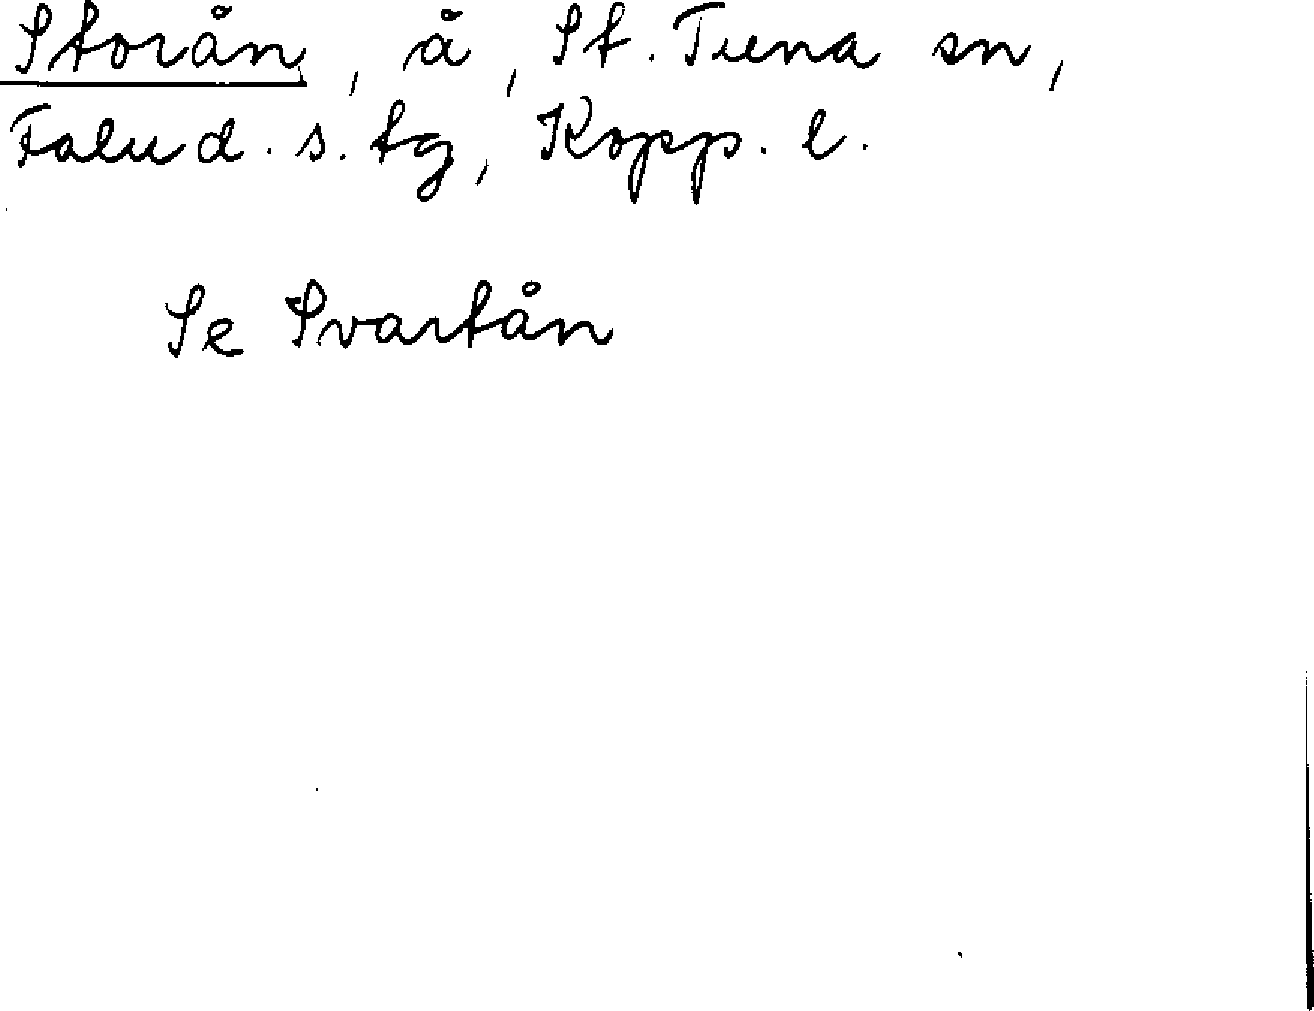 Storån, å, St. Tuna sn,
Falu d. s. tg, Kopp. l.
Se Svartån